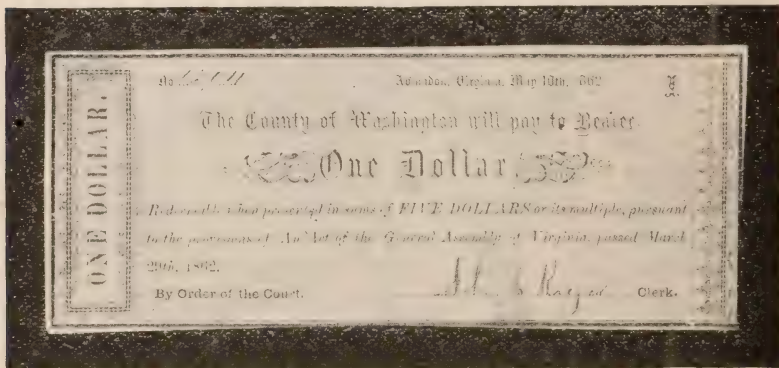 ONE DOLLAR.
No
Abingdon, Virginia, May 10th, 1862
The County of Washington will pay to Bearer
One Dollar,
Redeemable when presented in sums of FIVE DOLLARS or its multiple, pursuant
to the provisions of An Act of the General Assembly of Virginia, passed March
29th, 1862.
By Order of the Court.
Clerk.